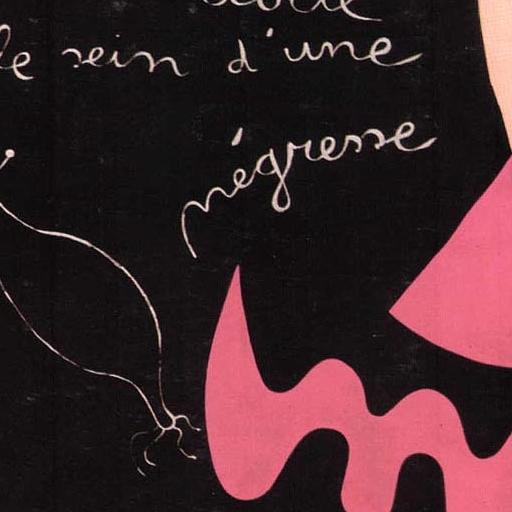 le sein d'une
négresse